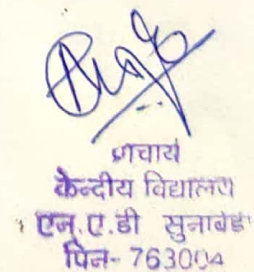 प्राचार्य
केन्दीय विद्यालय
एन.ए.डी सुनाबेडा
पिन- 763004